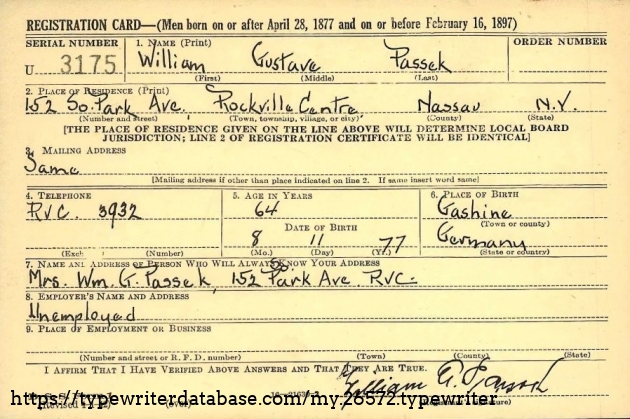 REGISTRATION CARD—(Men born on or after April 28, 1877 and on or before February 16, 1897)
SERIAL NUMBER 1. NAME (Print) ORDER NUMBER
U 3175 William Gustave Passek
(First) (Middle) (Last)
2. PLACE OF RESIDENCE (Print)
152 So. Park Ave. Rockville Centre Nassau N.Y.
(Number and street) (Town, township, village, or city) (County) (State)
[THE PLACE OF RESIDENCE GIVEN ON THE LINE ABOVE WILL DETERMINE LOCAL BOARD
JURISDICTION; LINE 2 OF REGISTRATION CERTIFICATE WILL BE IDENTICAL]
3. MAILING ADDRESS
Same
[Mailing address if other than place indicated on line 2. If same insert word same]
4. TELEPHONE 5. AGE IN YEARS 6. PLACE OF BIRTH
RVC. 3932 64 Gashine
(Town or county)
DATE OF BIRTH
8 11 77 Germany
(Exch (Number) (Mo.) (Day) (Yr.) (State or country)
7. NAME AND ADDRESS OF PERSON WHO WILL ALWAYS KNOW YOUR ADDRESS
Mrs. Wm. G. Passek, 152 So. Park Ave. RVC.
8. EMPLOYER'S NAME AND ADDRESS
Unemployed
9. PLACE OF EMPLOYMENT OR BUSINESS
(Number and street or R. F. D. number) (Town) (County) (State)
I AFFIRM THAT I HAVE VERIFIED ABOVE ANSWERS AND THAT THEY ARE TRUE.
William G. Passek
https://typewriterdatabase.com/my.26572.typewriter
(over)